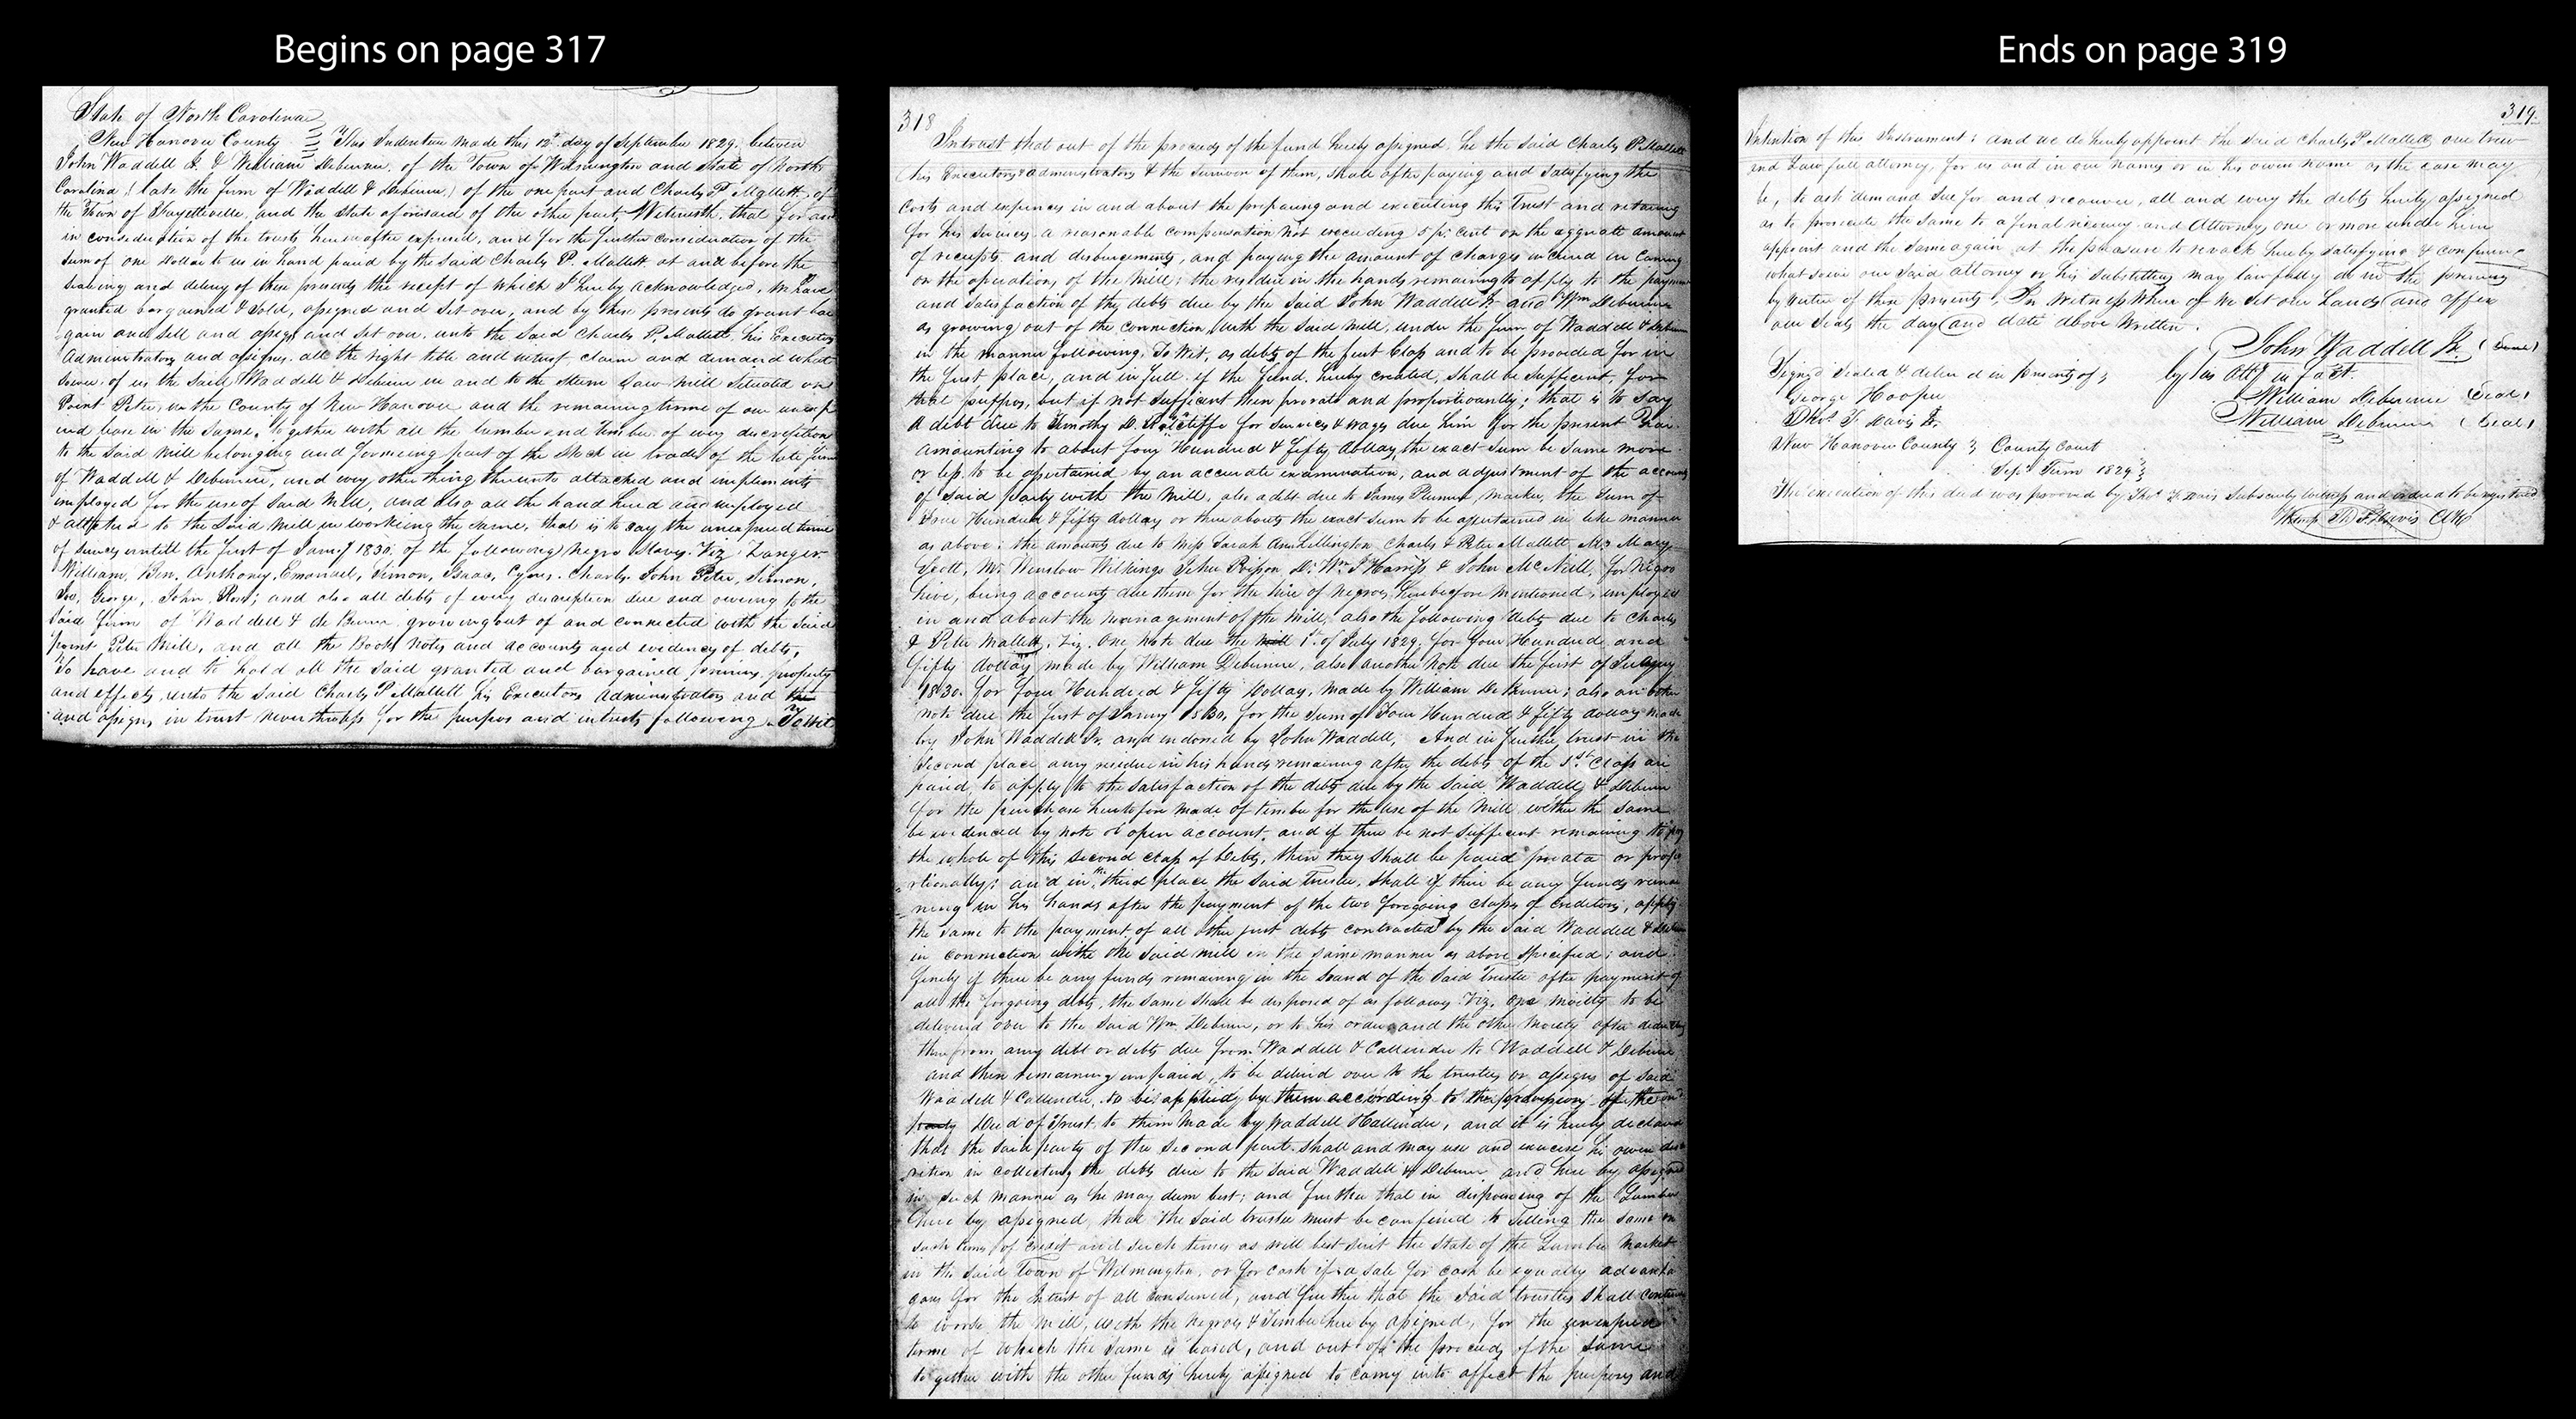 Begins on page 317
State of North Carolina
New Hanover County This Indenture made this 12th day of September 1829. between
John Waddell Jr & William Deburnie, of the Town of Wilmington and State of North
Carolina (late the firm of Waddell & Deburnie) of the one part and Charles P Mallett, of
the Town of Fayetteville, and the State aforesaid of the other part, Witnesseth, that for and
in consideration of the trusts hereinafter expressed, and for the further consideration of the
sum of one Dollar to us in hand paid by the said Charles P. Mallett at and before the
sealing and delivry of these presents the receipt of which I hereby acknowledged, We have
granted bargained & sold, assigned and set over, and by these presents do grant bar
gain and sell and assign and set over, unto the said Charles P. Mallett, his Executors
Administrators and assigns, all the right title and interest claim and demand what
soever, of us the said Waddell & Deburnie in and to the Steam Saw mill Situated on
Point Peter, in the County of New Hanover and the remaining terme of our unexp
ired lease in the same, together with all the lumber and timber of every discription
to the said mill belonging and formeing part of the Stock in trade of the late firm
of Waddell & Deburnie, and every other thing thereunto attached and implements
employed for the use of said Mill, and also all the hand hired and employed
& attached to the said Mill in workeing the same, that is to say the unexpired time
of services untill the first of Jany 1830. of the following Negro Slaves. Viz
William, Ben, Anthony, Emanuel, Simon, Isaac, Cyrus, Charles, John Peter, Simon,
George, John, and also all debts of every discription due and oweing to the
said firm of Waddell & de Burnie growing out of and connected with the said
point Peter Mill, and all the Book Notes and accounts and evidences of debts,
To have and to hold all the said granted and bargained premises, property
and effects, unto the said Charles P Mallett his Executors Administrators and
and assigns, in trust nevertheless for the purposes and intrusts following Towit
318
In trust that out of the proceeds of the fund hereby assigned, he the said Charles P. Mallett
his Executors & administrators & the survivor of them, shall after paying and satisfying the
costs and expences in and about the prepairing and executing this Trust and retaining
for his services a reasonable compensation not exceeding 5 pr cent on the aggreate amount
of receipts and disbursements, and paying the amount of charges incurred in Carrying
on the opperations of the Mill; the residue in the hands remaining to apply to the payment
and satisfaction of the debts due by the said John Waddell Jr and Wm Deburnie
as growing out of the connection with the said Mill, under the firm of Waddell & Deburnie
in the manner following, To Wit, as debts of the first Class and to be provided for in
the first place, and in full if the fund, hereby created, shall be sufficent, for
that purpos, but if not sufficent then prorata and proportionantly; that is to say
A debt due to Timothy D. Ratcliffe for services & wages due him for the present Year
amounting to about four Hundred & fifty dollars, the exact sum be same more
or less to be assertained by an accurate examination, and adjustment of the accounts
of said party with the Mill, also a debt due to James Plumer, Marker, the Sum of
Hundred & fifty dollars or there abouts the exact sum to be assertained in like manner
as above; the amounts due to Miss Sarah Ann Lillington, Charles & Peter Mallett, Mrs Mary
Scott, Mr Winslow Wilkings Jehu Poisson Dr. Wm J Harriss & John McNeill, for Negro
hire, being accounts due them for the hire of negroes, hereinbefore mentioned, employed
in and about the management of the Mill, also the following debts due to Charles
& Peter Mallett, Viz. One note due the mill 1st of July 1829, for four Hundred and
fifty dollars made by William Deburnie, also another note due the first of
1830. for four Hundred & fifty dollars, made by William De Burnie; also another
note due the first of Janry 1830, for the Sum of Four Hundred & fifty dollars made
by John Waddell Jr. and endorsed by John Waddell, And in further trust in the
second place any residue in his hands remaining after the debts of the 1st Class are
paid, to apply to the satisfaction of the debts due by the said Waddell & Deburn
for the purchase heretofore made of timber for the use of the Mill wether the same
be evidenced by note or open account, and if there be not sufficent remaining to pay
the whole of this second class of Debts, then they shall be paied prorata or propo
rtionally; and in the third place the said Trustee, shall if there be any funds remai
ning in his hands after the payment of the two foregoing classes of Creditors, apply
the same to the payment of all other just debts contracted by the said Waddell & Deburn
in connection withe the said mill in the same manner as above spicified; and
finely if there be any funds remaining in the hand of the said Trustee after payment of
all the forgoing debts, the same shall be disposed of as follows Viz. one moiety to be
delivered over to the said Wm Deburn, or to his order, and the other moiety after deducting
therefrom any debt or debts due from Waddell & Callender to Waddell & Deburnie,
and then remaining unpaied, to be deliverd over to the trustees or assigns of said
Waddell & Callender, to be applied by them according to the provisions of the
party Deed of Trust, to them made by Waddell & Callender, and it is hereby declared
that the said party of the Second part shall and may use and exercise his own disc
rition in collecting the debts due to the said Waddell & Deburn and here by assigned
in such manner as he may deem best; and further that in disposeing of the Lumber
here by assigned, that the said trustee must be confined to selling the same on
such terms of credit and such times as will best suit the State of the Lumber Market
in the said Town of Wilmington, or for cash if a sale for cash be equally advanta
geous for the Intrest of all concerned, and further that the said trustee shall continue
to worke the Mill, with the Negroes & Timber here by assigned, for the unexpired
terme of which the same is leased, and out of the proceeds of the same
to gether with the other funds hereby assigned to carry into effect the purposes and
Ends on page 319
319.
Intention of this Instrument; and we do hereby appoint the said Charles P. Mallett our true
and Lawfull attorney, for us and in our names or in his owen name as the case may
be, to ask demand sue for and recover, all and every the debts hereby assigned
as to prosecute the same to a final recovery and Attorney one or more under him
appoint and the same again at the pleasure to revoke hereby satisfying & confirming
what soever our said attorney or his substitutes may lawfully do in the premises
by virtue of these presents. In witness where of we set our hands and affix
our Seals the day and date above Written.
John Waddell Jr. (Seal)
Signed Sealed & deliverd in presents of by his Atty in fact.
George Hooper William Deburnie (Seal)
Thos. F. Davis Jr. William Deburnie (Seal)
New Hanover County County Court
Sept. Term 1829
The execution of this deed was prooved by Thos. F. Davis Subscribing Witness and ordered to be registered